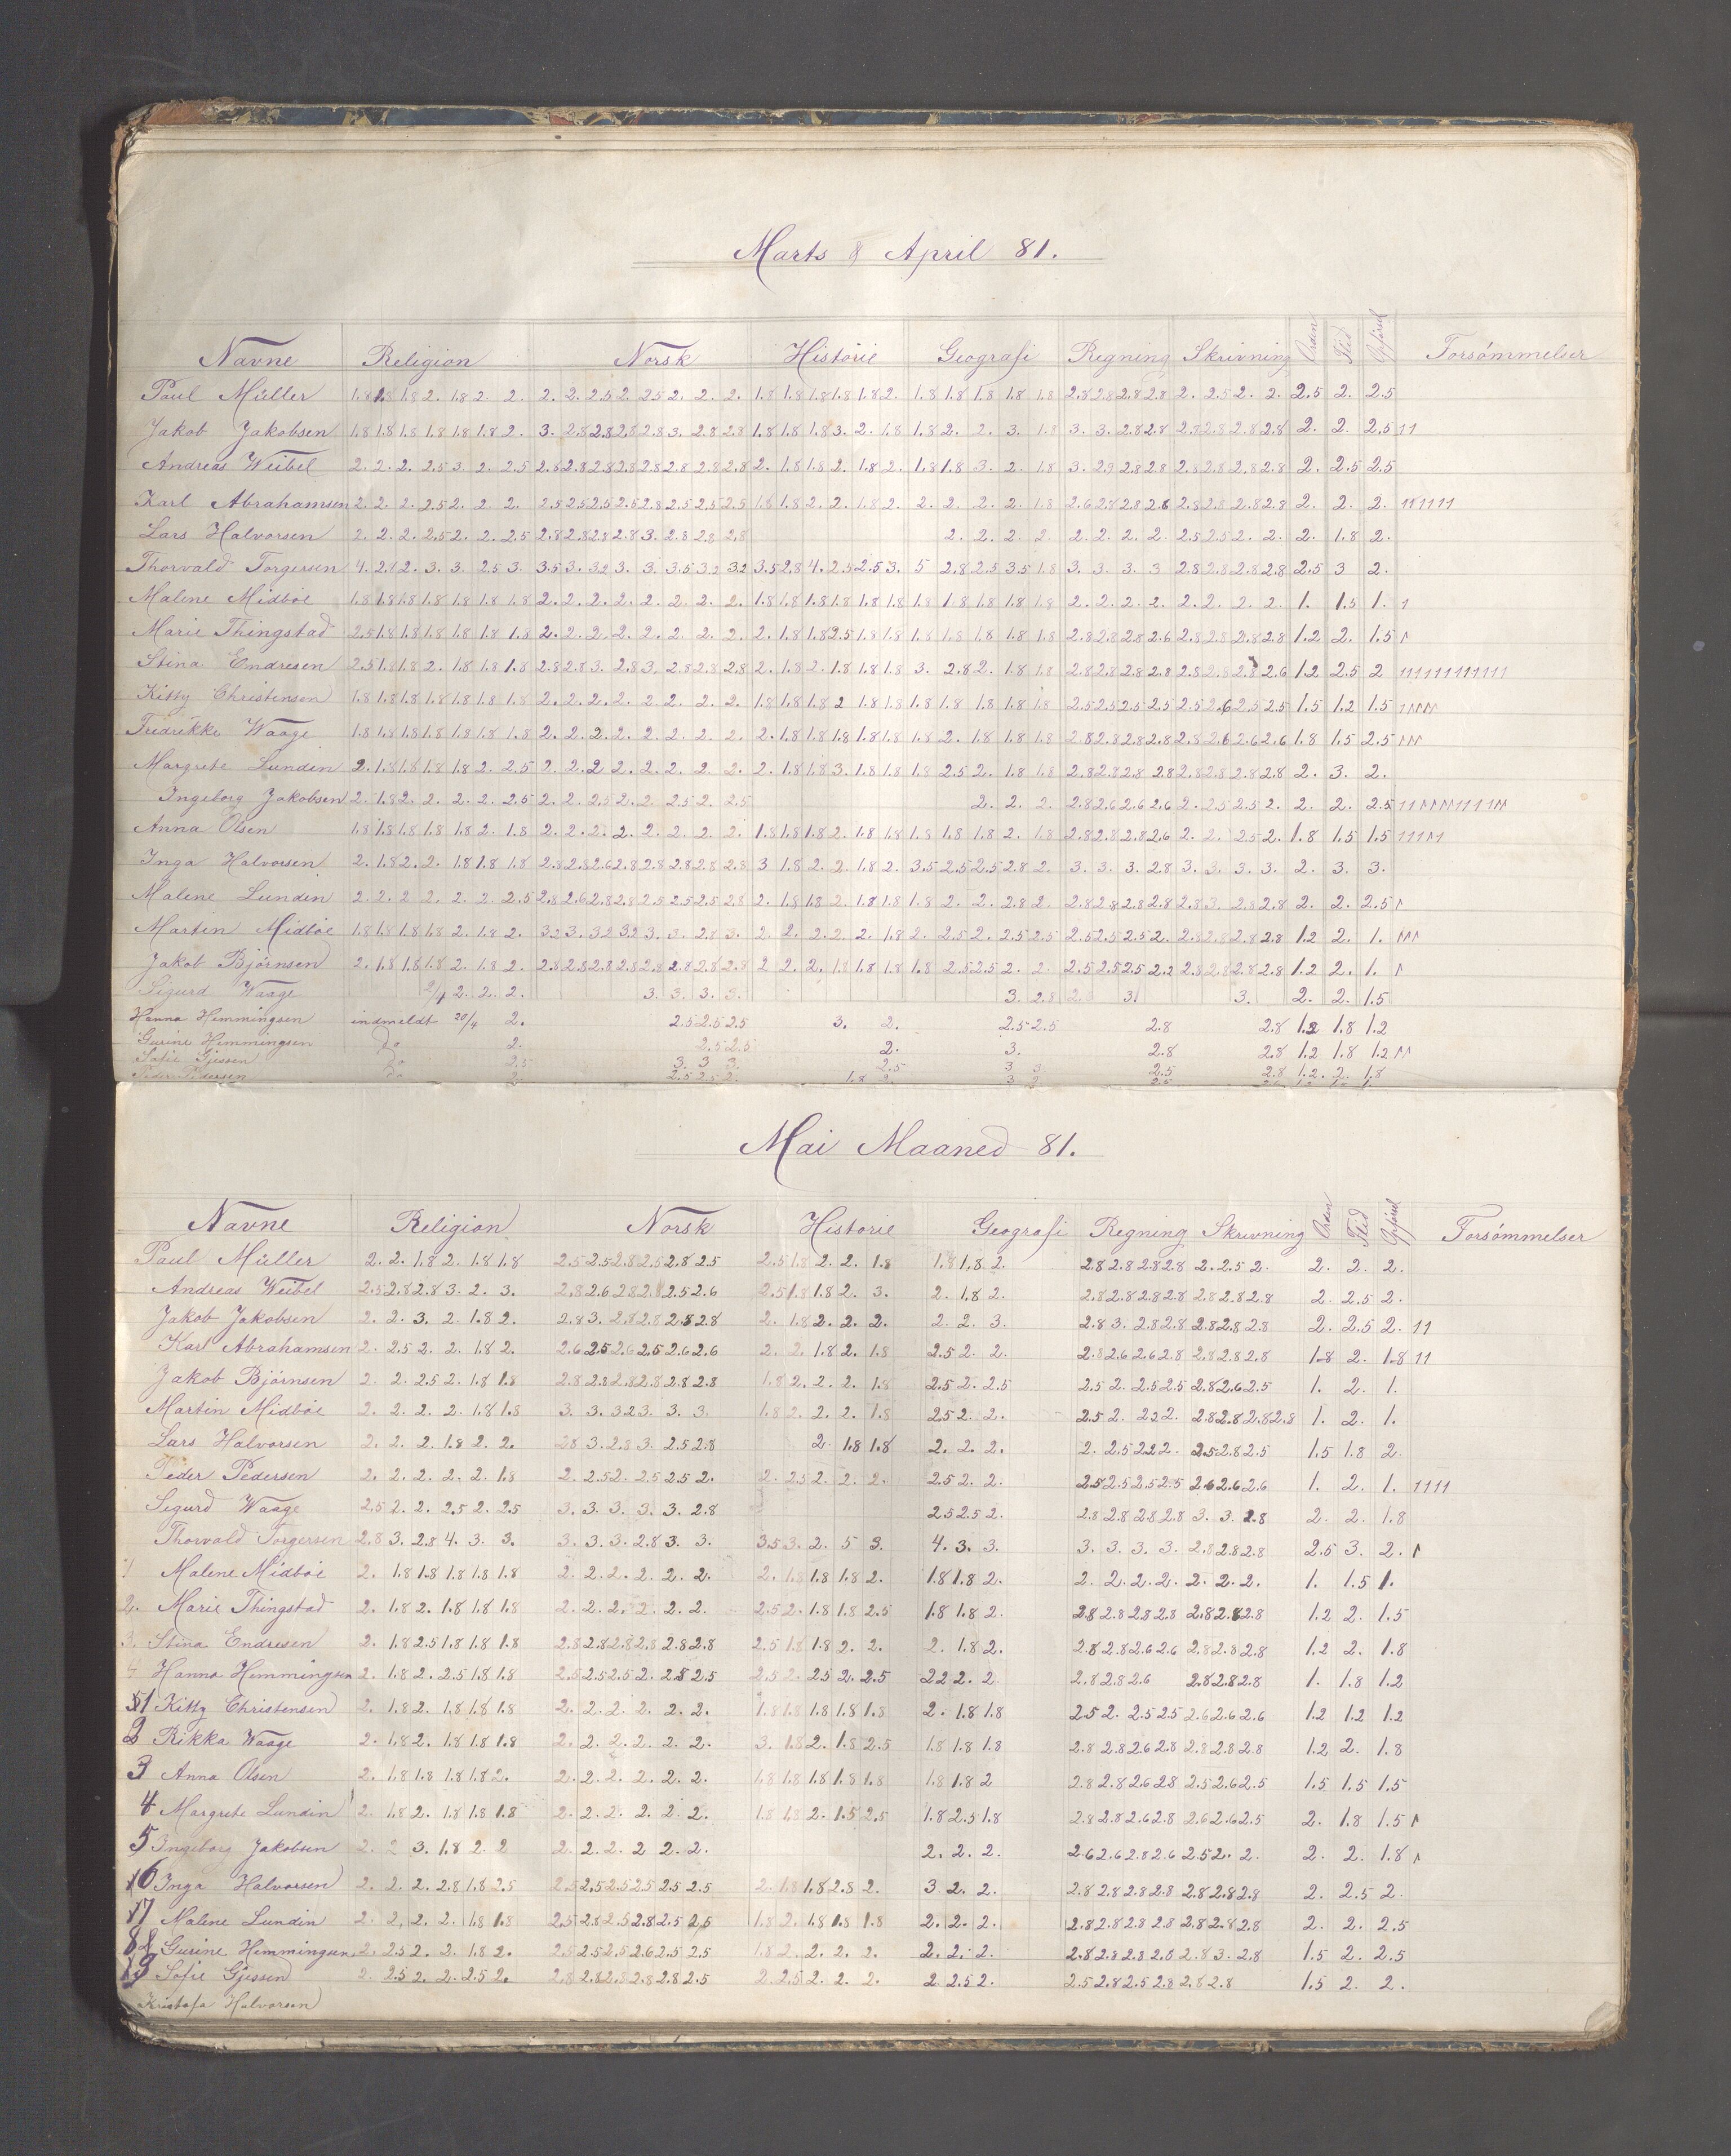 Marts & April 81.
Navne Religion Norsk Historie Geografi Regning Skrivning Orden Flid Opførsel Forsømmelser
Paul Müller 1.8 1.8 1.8 2. 1.8 2. 2. 2. 2. 2.5 2. 2.5 2. 2. 2. 1.8 1.8 1.8 1.8 1.8 2. 1.8 1.8 1.8 1.8 1.8 2.8 2.8 2.8 2.8 2. 2.5 2. 2. 2.5 2. 2.5
Jakob Jakobsen 1.8 1.8 1.8 1.8 1.8 1.8 2. 3. 2.8 2.8 2.8 2.8 3. 2.8 2.8 1.8 1.8 1.8 3. 2. 1.8 1.8 2. 2. 3. 1.8 3. 3. 2.8 2.8 2.8 2.8 2.8 2.8 2. 2. 2.5 11
Andreas Weibel 2. 2. 2. 2.5 3 2. 2.5 2.8 2.8 2.8 2.8 2.8 2.8 2.8 2.8 2. 1.8 1.8 2. 1.8 2. 1.8 1.8 3. 2. 1.8 3. 2.9 2.8 2.8 2.8 2.8 2.8 2.8 2. 2.5 2.5
Karl Abrahamsen 2. 2. 2. 2.5 2. 2. 2. 2.5 2.5 2.5 2.5 2.8 2.5 2.5 2.5 1.8 1.8 2. 2. 1.8 2. 2. 2. 2. 2. 1.8 2.6 2.8 2.8 2.6 2.8 2.8 2.8 2.8 2. 2. 2. 111111
Lars Halvorsen 2. 2. 2. 2.5 2. 2. 2.5 2.8 2.8 2.8 2.8 3. 2.8 2.8 2.8 2. 2. 2. 2. 2. 2. 2. 2. 2.5 2.5 2. 2. 2. 1.8 2.
Thorvald Torgersen 4. 2.1 2. 3. 3. 2.5 3. 3.5 3. 3.2 3. 3. 3.5 3.2 3.2 3.5 2.8 4. 2.5 2.5 3. 5 2.8 2.5 3.5 1.8 3. 3. 3. 3 2.8 2.8 2.8 2.8 2.5 3 2.
Malene Midbøe 1.8 1.8 1.8 1.8 1.8 1.8 1.8 2. 2. 2. 2. 2. 2. 2. 2. 1.8 1.8 1.8 1.8 1.8 1.8 1.8 1.8 1.8 1.8 1.8 2. 2. 2. 2. 2. 2. 2. 2. 1. 1.5 1. 1
Marie Thingstad 2.5 1.8 1.8 1.8 1.8 1.8 1.8 2. 2. 2. 2. 2. 2. 2. 2. 2. 1.8 1.8 2.5 1.8 1.8 1.8 1.8 1.8 1.8 1.8 2.8 2.8 2.8 2.6 2.8 2.8 2.8 2.8 1.2 2. 1.5 1
Stina Endresen 2.5 1.8 1.8 2. 1.8 1.8 1.8 2.8 2.8 3. 2.8 3. 2.8 2.8 2.8 2. 1.8 2. 1.8 1.8 1.8 3. 2.8 2. 1.8 1.8 2.8 2.8 2.8 2.8 2.8 2.8 2.8 2.6 1.2 2.5 2 111111111111
Kitty Christensen 1.8 1.8 1.8 1.8 1.8 1.8 1.8 2. 2. 2. 2. 2. 2. 2. 2. 1.8 1.8 1.8 2 1.8 1.8 1.8 1.8 1.8 1.8 1.8 2.5 2.5 2.5 2.5 2.5 2.6 2.5 2.5 1.5 1.2 1.5 1111
Fredrikke Waage 1.8 1.8 1.8 1.8 1.8 1.8 1.8 2. 2. 2. 2. 2. 2. 2. 2. 2. 1.8 1.8 1.8 1.8 1.8 1.8 2. 1.8 1.8 1.8 2.8 2.8 2.8 2.8 2.8 2.6 2.6 2.6 1.8 1.5 2.5 111
Margrete Lundin 2. 1.8 1.8 1.8 1.8 2. 2.5 2. 2. 2 2. 2. 2. 2. 2. 2. 1.8 1.8 3. 1.8 1.8 1.8 2.5 2. 1.8 1.8 2.8 2.8 2.8 2.8 2.8 2.8 2.8 2.8 2. 3. 2.
Ingeborg Jakobsen 2. 1.8 2. 2. 2. 2. 2.5 2. 2. 2.5 2. 2. 2.5 2. 2.5 2. 2. 2. 2.8 2.6 2.6 2.6 2. 2.5 2.5 2. 2. 2. 2.5 11111111111
Anna Olsen 1.8 1.8 1.8 1.8 1.8 2. 1.8 2. 2. 2. 2. 2. 2. 2. 2. 1.8 1.8 1.8 2. 1.8 1.8 1.8 1.8 1.8 2. 1.8 2.8 2.8 2.8 2.6 2. 2. 2.5 2. 1.8 1.5 1.5 11111
Inga Halvorsen 2. 1.8 2. 2. 1.8 1.8 1.8 2.8 2.8 2.6 2.8 2.8 2.8 2.8 2.8 3 1.8 2. 2. 1.8 2. 3.5 2.5 2.5 2.8 2. 3. 3. 3. 2.8 3. 3. 3. 3. 2. 3. 3.
Malene Lunden 2. 2. 2 2. 2. 2. 2.5 2.8 2.6 2.8 2.8 2.5 2.5 2.5 2.8 2. 1.8 1.8 2. 1.8 1.8 1.8 2. 2. 2.8 2. 2.8 2.8 2.8 2.8 2.8 3. 2.8 2.8 2. 2. 2.5 1
Martin Midbøe 1.8 1.8 1.8 1.8 2. 1.8 2. 3.2 3. 3.2 3.2 3. 3. 2.8 3. 2. 2. 2. 2. 2. 1.8 2. 2.5 2. 2.5 2.5 2.5 2.5 2.5 2. 2.8 2.8 2.8 2.8 1.2 2. 1. 111
Jakob Bjørnsen 2. 1.8 1.8 1.8 2. 1.8 2. 2.8 2.8 2.8 2.8 2.8 2.8 2.8 2.8 2 2. 2. 1.8 1.8 1.8 1.8 2.5 2.5 2. 2. 2.5 2.5 2.5 2.2 2.8 2.8 2.8 2.8 1.2 2. 1. 1
Sigurd Waage 2/4 2. 2. 2. 3. 3. 3. 3. 3. 2.8 2. 3. 3. 2. 2. 1.5
Hanna Hemmingsen indmeldt 20/4 2. 2.5 2.5 2.5 3. 2. 2.5 2.5 2.8 2.8 1.2 1.8 1.2
Gurine Hemmingsen do 2. 2.5 2.5 2. 3. 2.8 2.8 1.2 1.8 1.2 11
Sofie Gjessen do 2.5 3. 3 3. 2.5 3 3. 2.5 2.8 1.2. 2. 1.8
Peder Pedersen do 2. 2.5 2.5 2. 1.8 2. 3
Mai Maaned 81.
Navne Religion Norsk Historie Geografi Regning Skrivning Orden Flid Opførsel Forsømmelser
Paul Müller 2. 2. 1.8 2. 1.8 1.8 2.5 2.5 2.8 2.5 2.8 2.5 2.5 1.8 2. 2. 1.8 1.8 1.8 2. 2.8 2.8 2.8 2.8 2. 2.5 2. 2. 2. 2.
Andreas Weibel 2.5 2.8 2.8 3. 2. 3. 2.8 2.6 2.8 2.8 2.5 2.6 2.5 1.8 1.8 2. 3. 2. 1.8 2. 2.8 2.8 2.8 2.8 2.8 2.8 2.8 2. 2.5 2.
Jakob Jakobsen 2. 2. 3. 2. 1.8 2. 2.8 3. 2.8 2.8 2.8 2.8 2. 1.8 2. 2. 2. 2. 2. 3. 2.8 3. 2.8 2.8 2.8 2.8 2.8 2. 2.5 2. 11
Karl Abrahamsen 2. 2.5 2. 2. 1.8 2. 2.6 2.5 2.6 2.5 2.6 2.6 2. 2. 1.8 2. 1.8 2.5 2. 2. 2.8 2.6 2.6 2.8 2.8 2.8 2.8 1.8 2. 1.8 11
Jakob Bjørnsen 2. 2. 2.5 2. 1.8 1.8 2.8 2.8 2.8 2.8 2.8 2.8 1.8 2. 2. 2. 1.8 2.5 2. 2.5 2.5 2. 2.5 2.5 2.8 2.6 2.5 1. 2. 1.
Martin Midbøe 2. 2. 2. 2. 1.8 1.8 3. 3. 3.2 3. 3. 3. 1.8 2. 2. 2. 1.8 2.5 2. 2. 2.5 2. 2.2 2. 2.8 2.8 2.8 2.8 1. 2. 1.
Lars Halvorsen 2. 2. 2. 1.8 2. 2. 2.8 3. 2.8 3. 2.5 2.8 2. 1.8 1.8 2. 2. 2. 2. 2.5 2.2 2. 2.5 2.8 2.5 1.5 1.8 2.
Peder Pedersen 2. 2. 2. 2. 2. 1.8 2. 2.5 2. 2.5 2.5 2. 2. 2.5 2. 2. 2. 2.5 2. 2. 2.5 2.5 2.5 2.5 2.6 2.6 2.6 1. 2. 1. 1111
Sigurd Waage 2.5 2. 2. 2.5 2. 2.5 3. 3. 3. 3. 3. 2.8 2.5 2.5 2. 2.8 2.8 2.8 2.8 3. 3. 2.8 2. 2. 1.8
Thorvald Torgersen 2.8 3. 2.8 4. 3. 3. 3. 3. 3. 2.8 3. 3. 3.5 3. 2. 5 3. 4. 3. 3. 3. 3. 3. 3. 2.8 2.8 2.8 2.5 3. 2. 1
1 Malene Midbøe 2. 1.8 1.8 1.8 1.8 1.8 2. 2. 2. 2. 2. 2. 2. 1.8 1.8 1.8 2. 1.8 1.8 2. 2. 2. 2. 2. 2. 2. 2. 1. 1.5 1.
2. Marie Thingstad 2. 1.8 2. 1.8 1.8 1.8 2. 2. 2. 2. 2. 2. 2.5 2. 1.8 1.8 2.5 1.8 1.8 2. 2.8 2.8 2.8 2.8 2.8 2.8 2.8 1.2 2. 1.5
3. Stina Endresen 2. 1.8 2.5 1.8 1.8 1.8 2.8 2.8 2.8 2.8 2.8 2.8 2.5 1.8 1.8 2. 2. 2. 1.8 2. 2.8 2.8 2.6 2.6 2.8 2.8 2.8 1.2 2. 1.8
4 Hanna Hemmingsen 2. 1.8 2. 2.5 1.8 1.8 2.5 2.5 2.5 2. 2.8 2.5 2.5 2. 2.5 2. 2.5 2.2 2. 2. 2.8 2.8 2.6 2.8 2.8 2.8 1. 1.8 1.2
51 Kitty Christensen 2. 1.8 2. 1.8 1.8 1.8 2. 2. 2. 2. 2. 2. 1.8 1.8 1.8 1.8 1.8 2. 1.8 1.8 2.5 2. 2.5 2.5 2.6 2.6 2.6 1.2 1.2 1.2
2 Rikka Waage 2. 1.8 2. 1.8 1.8 1.8 2. 2. 2. 2. 2. 2. 3. 1.8 2. 1.8 2.5 1.8 1.8 1.8 2.8 2.8 2.6 2.8 2.8 2.8 2.8 1.2 2. 1.8
3 Anna Olsen 2. 1.8 1.8 1.8 1.8 2. 2. 2. 2. 2. 2. 2. 1.8 1.8 1.8 1.8 1.8 1.8 1.8 2 2.8 2.8 2.6 2.8 2.5 2.6 2.5 1.5 1.5 1.5
4 Margrete Lundin 2. 1.8 2. 1.8 1.8 1.8 2. 2. 2. 2. 2. 2. 1.8 1.8 2. 1.5 2.5 1.8 2.5 1.8 2.8 2.8 2.6 2.8 2.6 2.6 2.5 2. 1.8 1.5 1
5 Ingeborg Jakobsen 2. 2 3. 1.8 2. 2 2. 2. 2. 2 2. 2. 2. 2. 2. 2.6 2.6 2.8 2.6 2.5 2. 2. 2. 2. 1.8 1
6 Inga Halvorsen 2. 2. 2. 2.8 1.8 2.5 2.5 2.5 2.5 2.5 2.5 2.5 2. 1.8 1.8 2.8 2. 3 2. 2. 2.8 2.8 2.8 2.8 2.8 2.8 2.8 2. 2.5 2.
7 Malene Lundin 2. 2. 2. 2. 1.8 1.8 2.5 2.8 2.5 2.8 2.5 2.5 1.8 2. 1.8 1.8 1.8 2. 2. 2. 2.8 2.8 2.8 2.8 2.8 2.8 2.8 2. 2. 2.5
8 Gurine Hemmingsen 2. 2.5 2. 2. 1.8 2. 2.5 2.5 2.5 2.6 2.5 2.5 1.8 2. 2. 2. 2. 2. 2. 2. 2.8 2.8 2.8 2.8 2.8 3. 2.8 1.5 2. 2.5
9 Sofie Gjessen 2. 2.5 2. 2. 2.5 2. 2.8 2.8 2.8 2.8 2.8 2.5 2. 2.5 2. 2. 2. 2. 2.5 2. 2.5 2.8 2.5 2.8 2.8 2.8 1.5 2. 2.
Kristofa Halvorsen